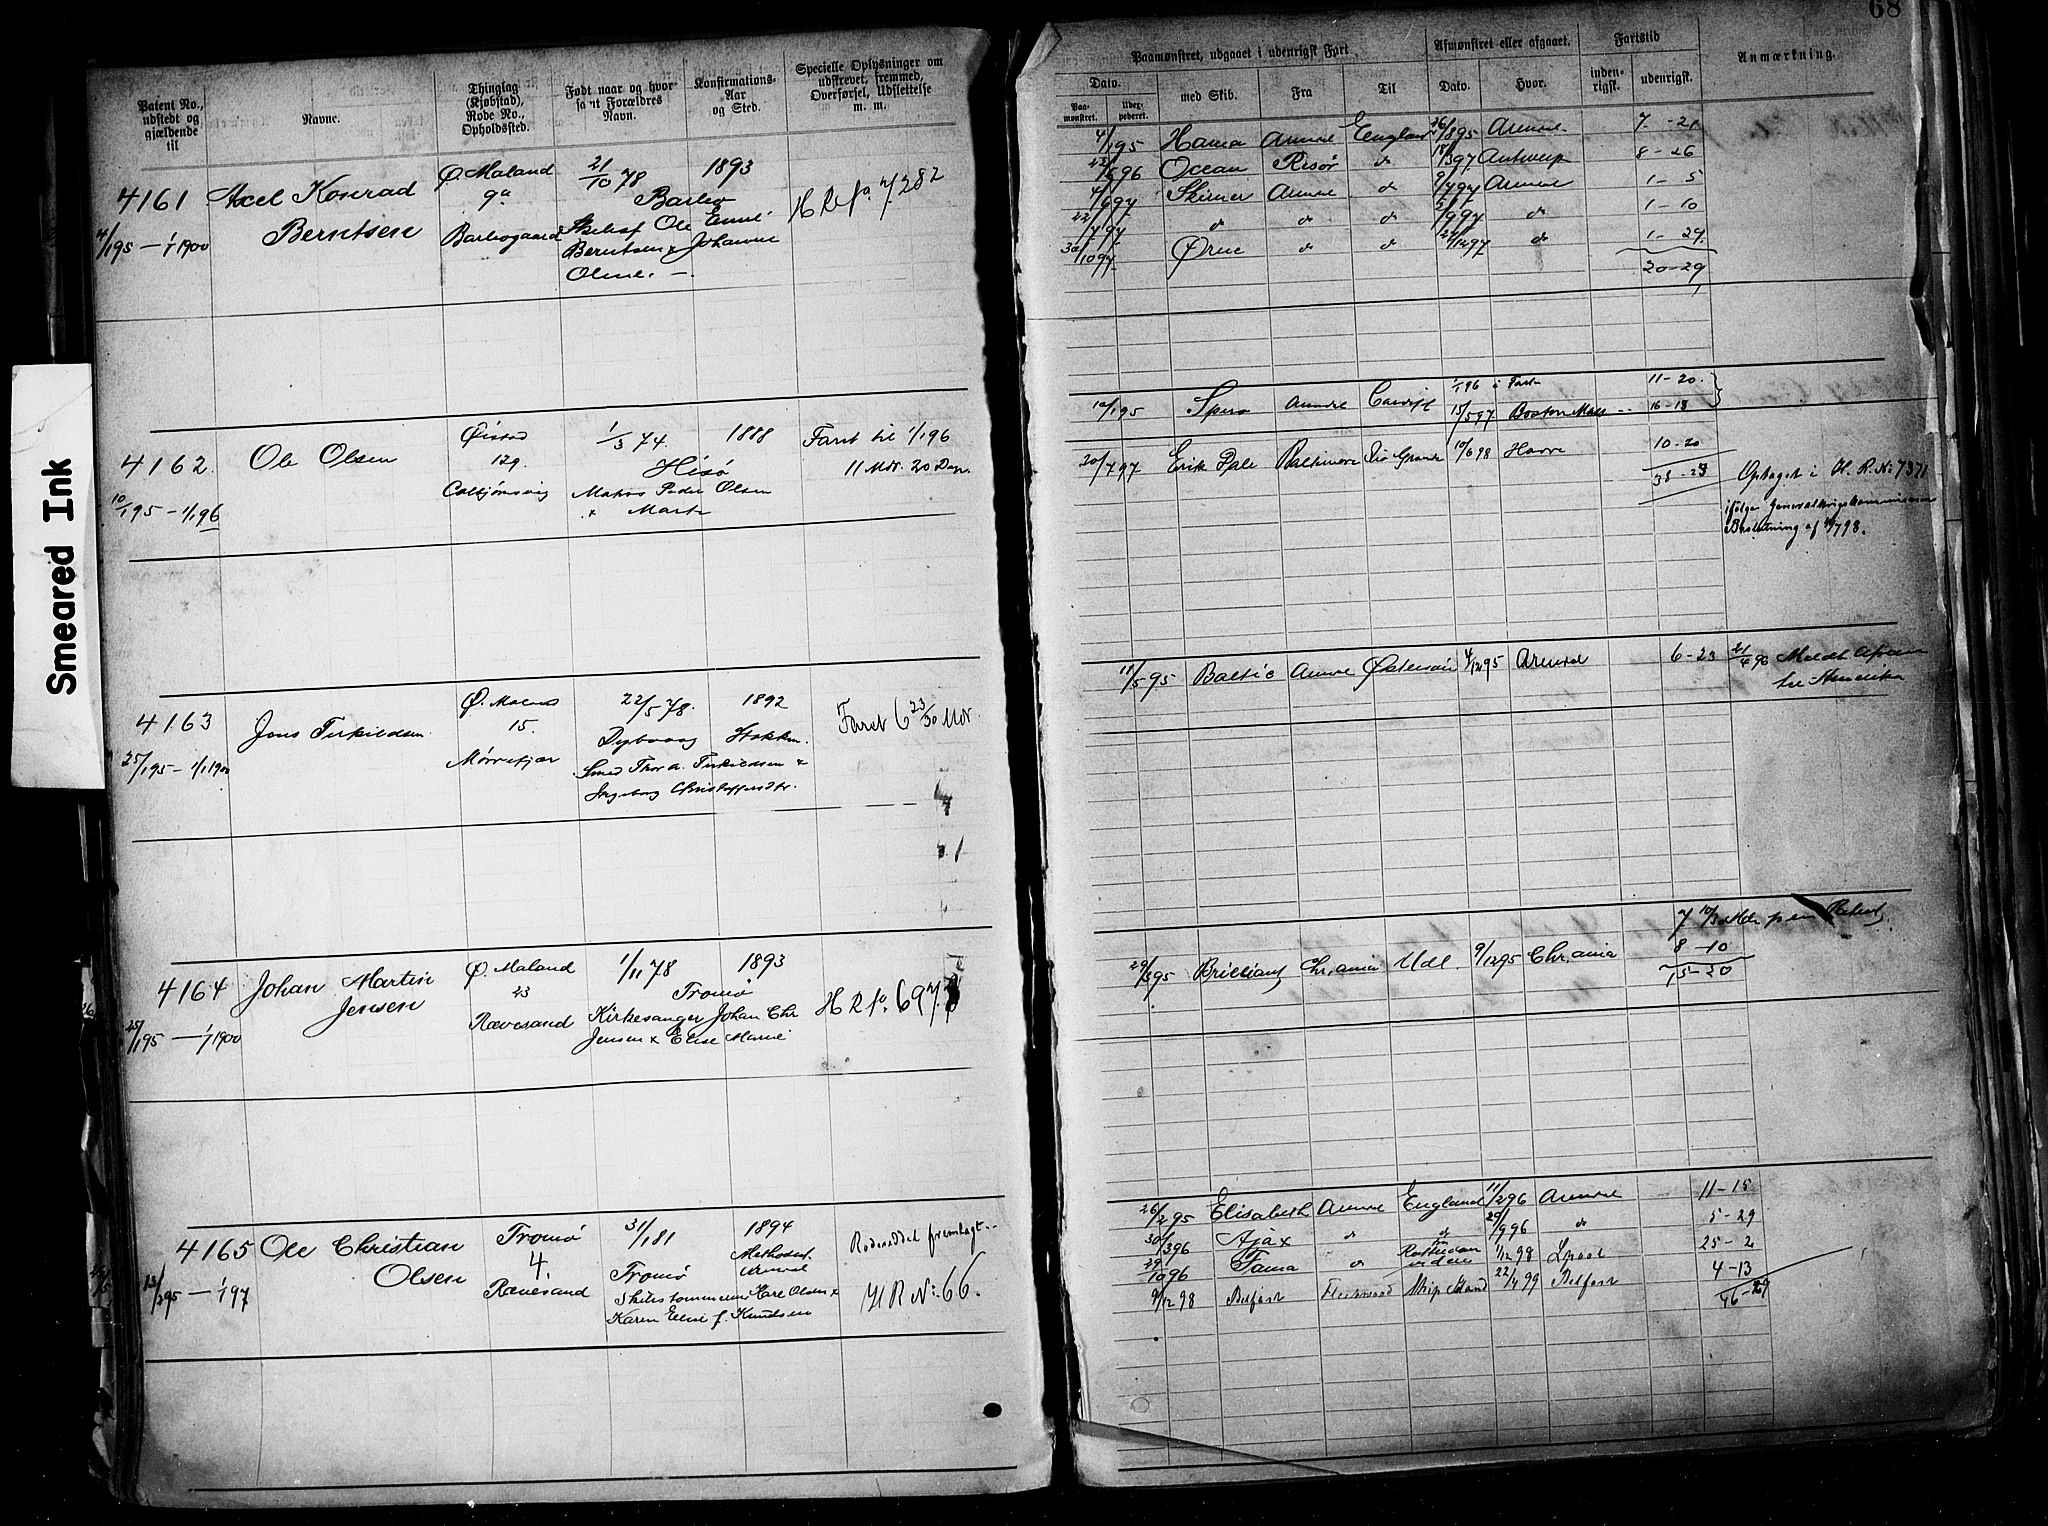 68
Patent No., udstedt og gjældende til
Navne.
Thinglag (Kjøbstad), Rode No., Opholdssted.
Født naar og hvor samt Forældres Navn.
Konfirmations-Aar og Sted.
Specielle Oplysninger om udskrevet, fremmed, Overførsel, Udslettelse m. m.
Paamønstret, udgaaet i udenrigsk Fart
Afmønstret eller afgaaet.
Fartstid
Anmærkning.
Dato.
med Skib.
Fra
Til
Dato.
Hvor.
inden-rigsk.
udenrigsk.
Paa-mønstret.
Smeared Ink
4161 Axel Konrad Berntsen
4/1 95 — 1/1 1900
Ø. Moland
9a
Barbogaard
21/10 78 1893
Barbo
Ole Emil
Berntsen & Johanne
Oline. —
H R No 7282
4/1 95 Hansa Arendal England 26/8 95 Arendal 7-21
Ocean Risør do 18/3 97 Antwerp 8-26
4/6 97 Skirner Arendal do 9/7 97 Arendal 1-5
22/7 97 do do do 2/9 97 do 1-10
30/10 97 Ørne do do 29/12 97 do 1-29
20-29
4162 Ole Olsen
10/1 95 — 1/1 96
Øiestad
129
Colbjørnsvig
1/3 74. 1888
Hisø
Matros Peder Olsen
& Marta
Faret til 1/1 96
11 Mdr. 20 Dage
10/1 95 Spero Arendal Cardiff 1/1 96 i Farta 11-20.
15/5 97 Boston Mass 16-13
20/7 97 Erik Baltimore Rio Grande 10/6 98 Havre 10-20
38-23
Optaget i H. R. No 7371
ifølge Generalkrigskommissærens
Beslutning af /7 98.
4163 Jens Terkildsen
25/1 95 — 1/1 1900
Ø. Moland
15.
Mørefjær
22/5 78. 1892
Dypvaag Flakken.
Smed Thor A. Terkildsen &
Ingeborg Christoffersdtr.
Faret 6 23/30 Mdr.
11/5 95 Baltic Arendal Østersøen 4/12 95 Arendal 6-23
21/4 96 Meldt
til Amerika
4164 Johan Martin Jensen
25/1 95 — 1/1 1900
Ø. Moland
23
Rævesand
1/11 78 1893
Tromø
Kirkesanger Johan Chr
Jensen & Elise Marie
H R No. 697
29/5 95 Brilliant Chr.ania Udl. 9/12 95 Chr.ania 8-10
7 10/30 Mdr per Patent
15-20
4165 Ole Christian Olsen
13/2 95 — 1/1 97
Tromø
4.
Rævesand
31/1 81 1894
Methodist
Arendal
Tromø
Skibstømmermand Karl Olsen &
Karen Eline f. Knudsen
Rodeseddel fremlagt.
H R No: 66.
26/2 95 Elisabeth Arendal England 11/2 96 Arendal 11-15
30/3 96 Ajax do do 29/9 96 do 5-29
29/10 96 Fama do Rotterdam videre 1/12 98 Lpool 25-2
9/12 98 Belfast Fleetwood Ship Island 22/4 99 Belfast 4-13
46-29